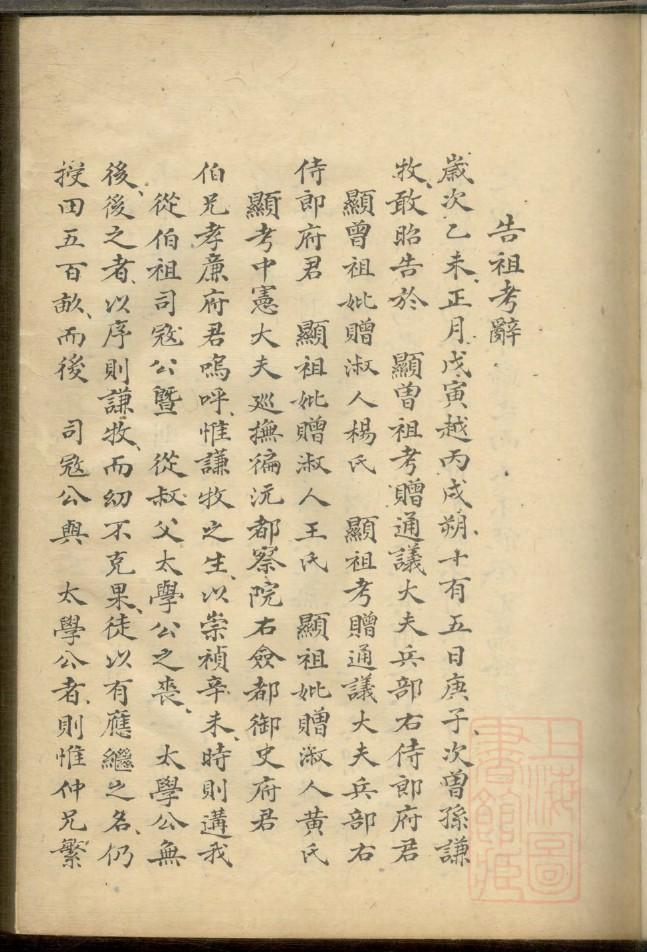 告祖考辭
歲次乙未、正月戊寅越丙戌朔、十有五日庚子、次曾孫謙
牧、敢昭告於 顯曽祖考贈通議大夫兵部右侍郎府君
顯曾祖妣贈淑人楊氏 顯祖考贈通議大夫兵部右
侍郎府君 顯祖妣贈淑人王氏 顯祖妣贈淑人黄氏
顯考中憲大夫廵撫徧沅都察院右僉都御史府君
伯兄孝亷府君嗚呼、惟謙牧之生、以崇禎辛未、時則遘我
從伯祖司宼公曁 從叔父太學公之喪、 太學公無
後、後之者、以序則謙牧、而幼不克果、徒以有應繼之名、仍
授田五百畝、而後 司宼公與 太學公者、則惟仲兄繁
上海圖
書館藏